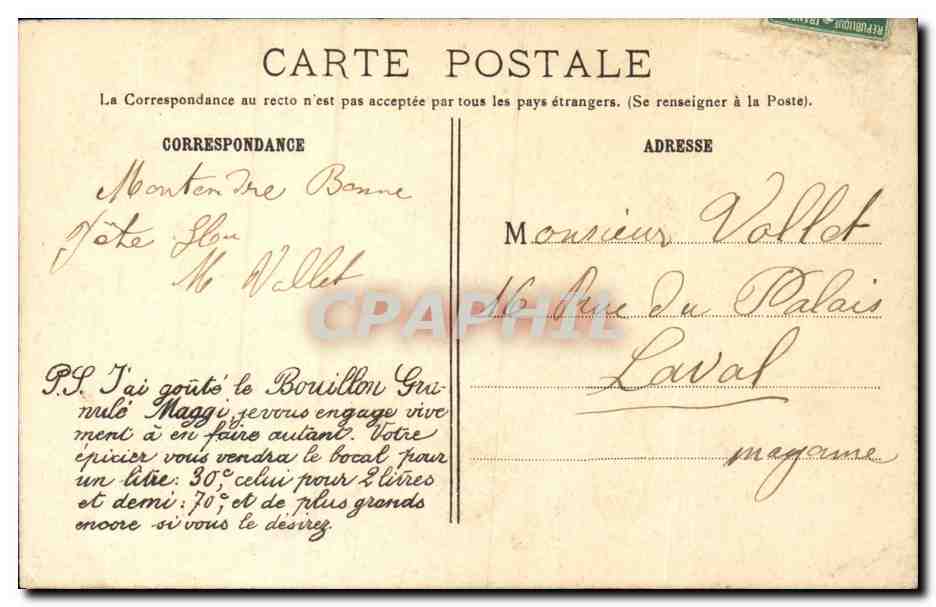 REPUBLIQUE FRANÇ
CARTE POSTALE
La Correspondance au recto n'est pas acceptée par tous les pays étrangers. (Se renseigner à la Poste).
CORRESPONDANCE
Montendre Bonne
Fête
M Vallet
P.S. J'ai goûté le Bouillon Gra-
nulé Maggi, je vous engage vive
ment à en faire autant. Votre
épicier vous vendra le bocal pour
un litre: 30c, celui pour 2 litres
et demi: 70c, et de plus grands
encore si vous le désirez.
ADRESSE
Monsieur Vallet
16 Rue du Palais
Laval
mayenne
CPAPHIL